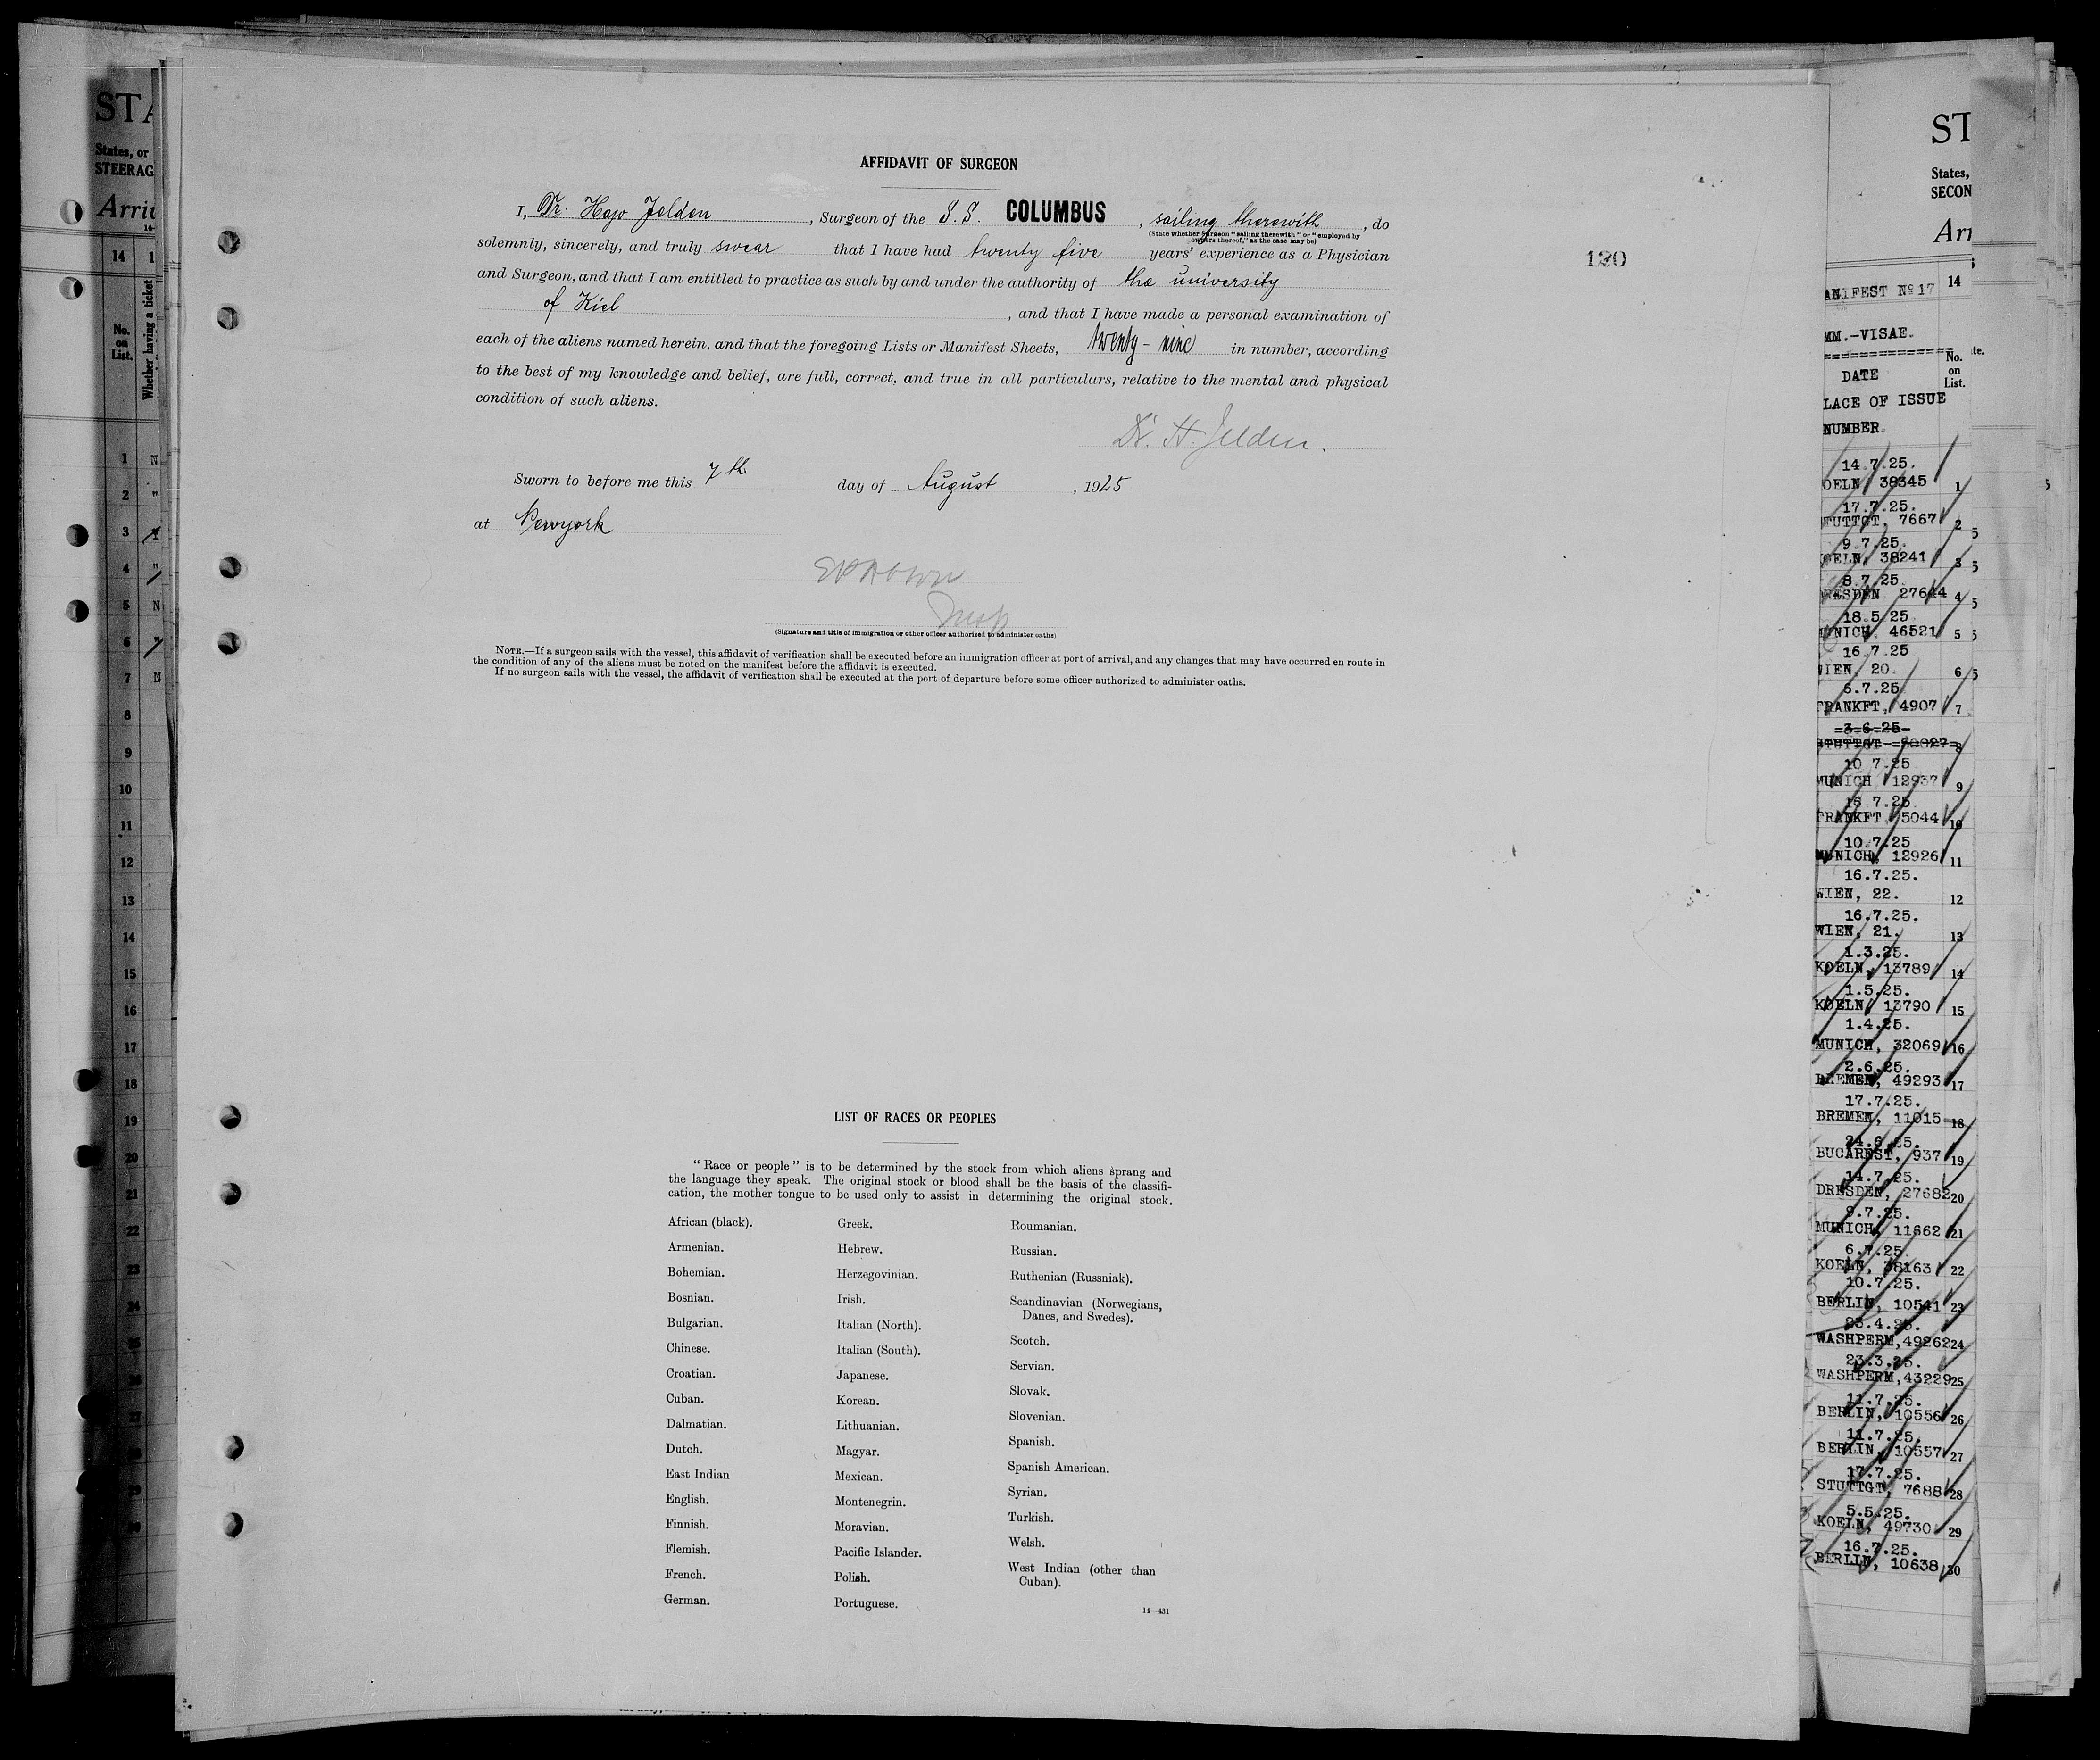 AFFIDAVIT OF SURGEON
I, Dr. Hajo Jelden, Surgeon of the S.S. COLUMBUS, sailing therewith, do
(State whether Surgeon "sailing therewith" or "employed by
owners thereof," as the case may be)
solemnly, sincerely, and truly swear that I have had twenty five years' experience as a Physician
and Surgeon, and that I am entitled to practice as such by and under the authority of the university
of Kiel, and that I have made a personal examination of
each of the aliens named herein, and that the foregoing Lists or Manifest Sheets, twenty-nine in number, according
to the best of my knowledge and belief, are full, correct, and true in all particulars, relative to the mental and physical
condition of such aliens.
Dr. H. Jelden.
Sworn to before me this 7th day of August, 1925
at Newyork
Insp
(Signature and title of immigration or other officer authorized to administer oaths)
NOTE.—If a surgeon sails with the vessel, this affidavit of verification shall be executed before an immigration officer at port of arrival, and any changes that may have occurred en route in
the condition of any of the aliens must be noted on the manifest before the affidavit is executed.
If no surgeon sails with the vessel, the affidavit of verification shall be executed at the port of departure before some officer authorized to administer oaths.
LIST OF RACES OR PEOPLES
"Race or people" is to be determined by the stock from which aliens sprang and
the language they speak. The original stock or blood shall be the basis of the classifi-
cation, the mother tongue to be used only to assist in determining the original stock.
African (black).
Armenian.
Bohemian.
Bosnian.
Bulgarian.
Chinese.
Croatian.
Cuban.
Dalmatian.
Dutch.
East Indian
English.
Finnish.
Flemish.
French.
German.
Greek.
Hebrew.
Herzegovinian.
Irish.
Italian (North).
Italian (South).
Japanese.
Korean.
Lithuanian.
Magyar.
Mexican.
Montenegrin.
Moravian.
Pacific Islander.
Polish.
Portuguese.
Roumanian.
Russian.
Ruthenian (Russniak).
Scandinavian (Norwegians,
Danes, and Swedes).
Scotch.
Servian.
Slovak.
Slovenian.
Spanish.
Spanish American.
Syrian.
Turkish.
Welsh.
West Indian (other than
Cuban).
14—431
STA
States, or
STEERAG
Arriv
14
No.
on
List.
Whether having a ticket
1 N
2 "
3
4 "
5 N
6 "
7 N
8
9
10
11
12
13
14
15
16
17
18
19
20
21
22
23
24
ST
States,
SECON
Arr
ANIFEST Nº 17
14
MM.-VISAE.
DATE
LACE OF ISSUE
NUMBER.
No.
on
List.
14.7.25.
OELN 38345 1
17.7.25.
TUTTGT, 7667 2
9.7.25.
OELN, 38241 3
8.7.25.
RESDEN 27644 4
18.5.25
UNICH, 46521 5
16.7.25
WIEN, 20. 6
6.7.25
FRANKFT, 4907 7
3.6.25
8
10.7.25
MUNICH 12937 9
16.7.25
FRANKFT 5044 10
10.7.25
MUNICH, 12926 11
16.7.25.
WIEN, 22. 12
16.7.25.
WIEN, 21. 13
1.3.25.
KOELN, 13789 14
1.5.25.
KOELN, 13790 15
1.4.25.
MUNICH, 32069 16
2.6.25.
BREMEN, 49293 17
17.7.25.
BREMEN, 11015 18
24.6.25.
BUCAREST, 937 19
14.7.25.
DRESDEN, 27682 20
9.7.25.
MUNICH, 11662 21
6.7.25.
KOELN, 38163 22
10.7.25.
BERLIN, 10541 23
23.4.25.
WASHPERM, 49262 24
23.3.25.
WASHPERM, 43229 25
11.7.25.
BERLIN, 10556 26
11.7.25.
BERLIN, 10557 27
17.7.25.
STUTTGT, 7688 28
5.5.25.
KOELN, 49730 29
16.7.25.
BERLIN, 10638 30